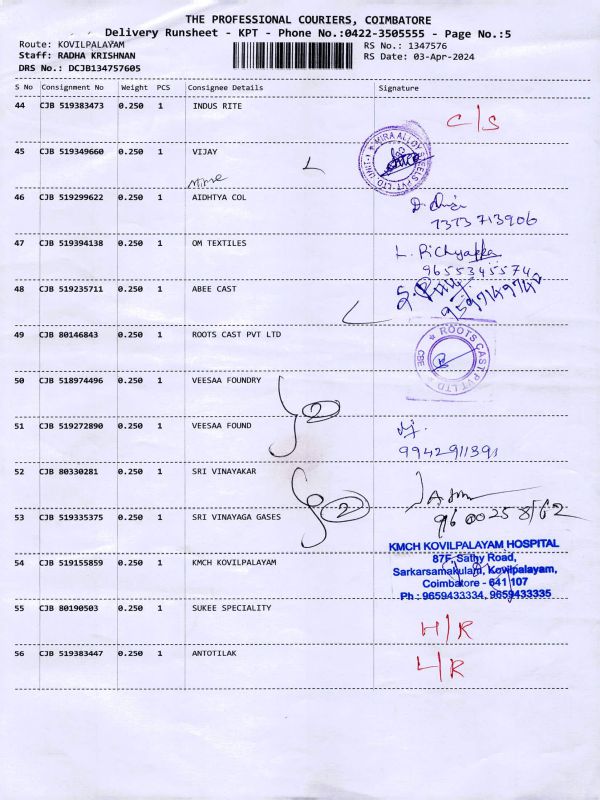 THE PROFESSIONAL COURIERS, COIMBATORE
Delivery Runsheet - KPT - Phone No.:0422-3505555 - Page No.:5
Route: KOVILPALAYAM RS No.: 1347576
Staff: RADHA KRISHNAN RS Date: 03-Apr-2024
DRS No.: DCJB134757605
S No Consignment No Weight PCS Consignee Details Signature
44 CJB 519383473 0.250 1 INDUS RITE C/S
45 CJB 519349660 0.250 1 VIJAY
46 CJB 519299622 0.250 1 AIDHTYA COL
7373713906
47 CJB 519394138 0.250 1 OM TEXTILES
9655345574
48 CJB 519235711 0.250 1 ABEE CAST
49 CJB 80146843 0.250 1 ROOTS CAST PVT LTD ROOTS CAST PVT LTD CBE
50 CJB 518974496 0.250 1 VEESAA FOUNDRY
2
51 CJB 519272890 0.250 1 VEESAA FOUND
9942911391
52 CJB 80330281 0.250 1 SRI VINAYAKAR
2
53 CJB 519335375 0.250 1 SRI VINAYAGA GASES 9600258162
KMCH KOVILPALAYAM HOSPITAL
87F, Sathy Road,
54 CJB 519155859 0.250 1 KMCH KOVILPALAYAM Sarkarsamakulam, Kovilpalayam,
Coimbatore - 641 107
Ph : 9659433334, 9659433335
55 CJB 80190503 0.250 1 SUKEE SPECIALITY H/R
56 CJB 519383447 0.250 1 ANTOTILAK